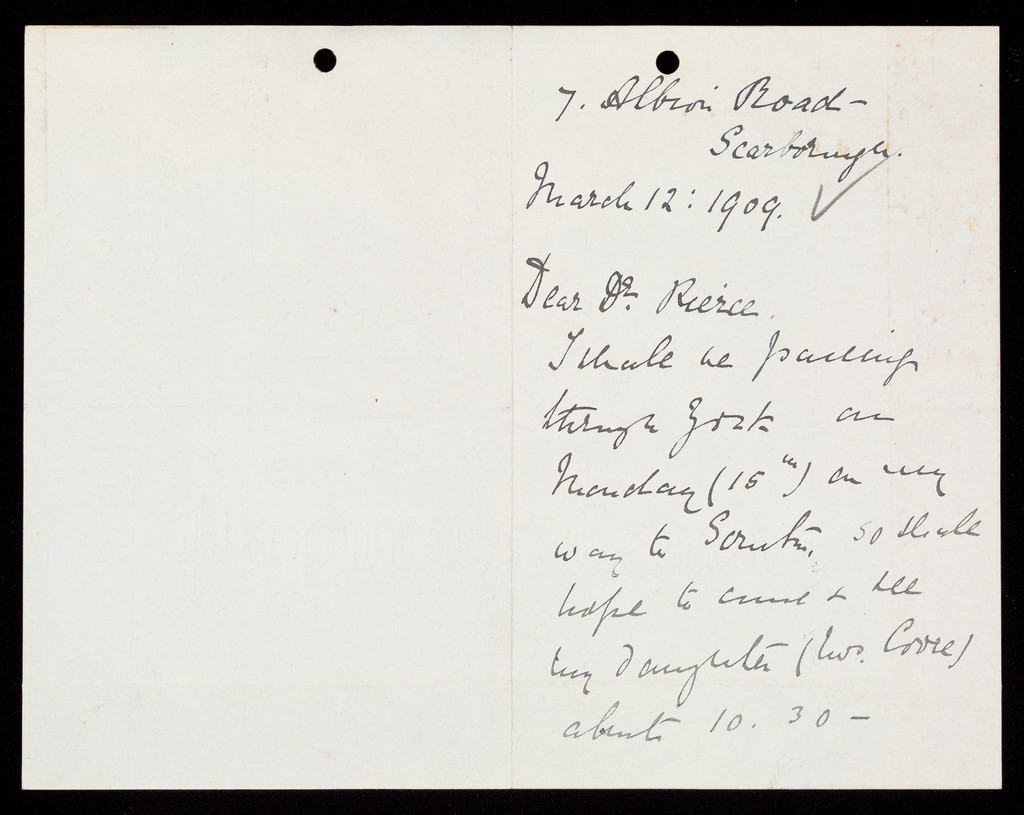 7. Albion Road –
Scarborough.
March 12: 1909.
Dear Dr. Pierce.
I shall be passing
through York on
Monday (15th) on my
way to Scruton, so shall
hope to come & see
my daughter (Mrs. Coore)
about 10.30 –